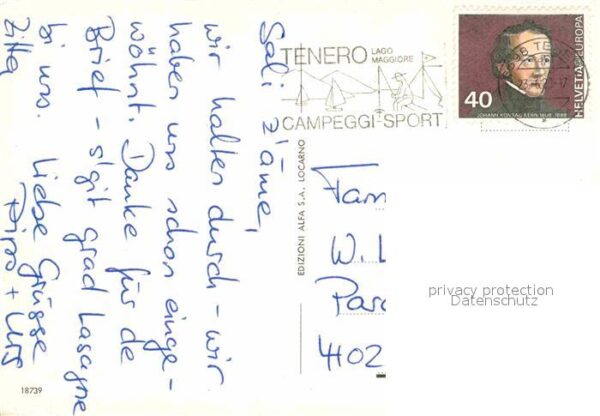 Sali z'äme,
wir halten durch - wir
haben uns schon einge-
wöhnt. Danke für de
Brief - s'git grad Lasagne
bi uns. Liebe Grüsse
+ Urs
TENERO LAGO MAGGIORE
CAMPEGGI-SPORT
40
HELVETIA EUROPA
JOHANN KONRAD KERN 1808-1888
EDIZIONI ALFA S.A., LOCARNO
Fam
W. L
Par
4102
privacy protection
Datenschutz
18739